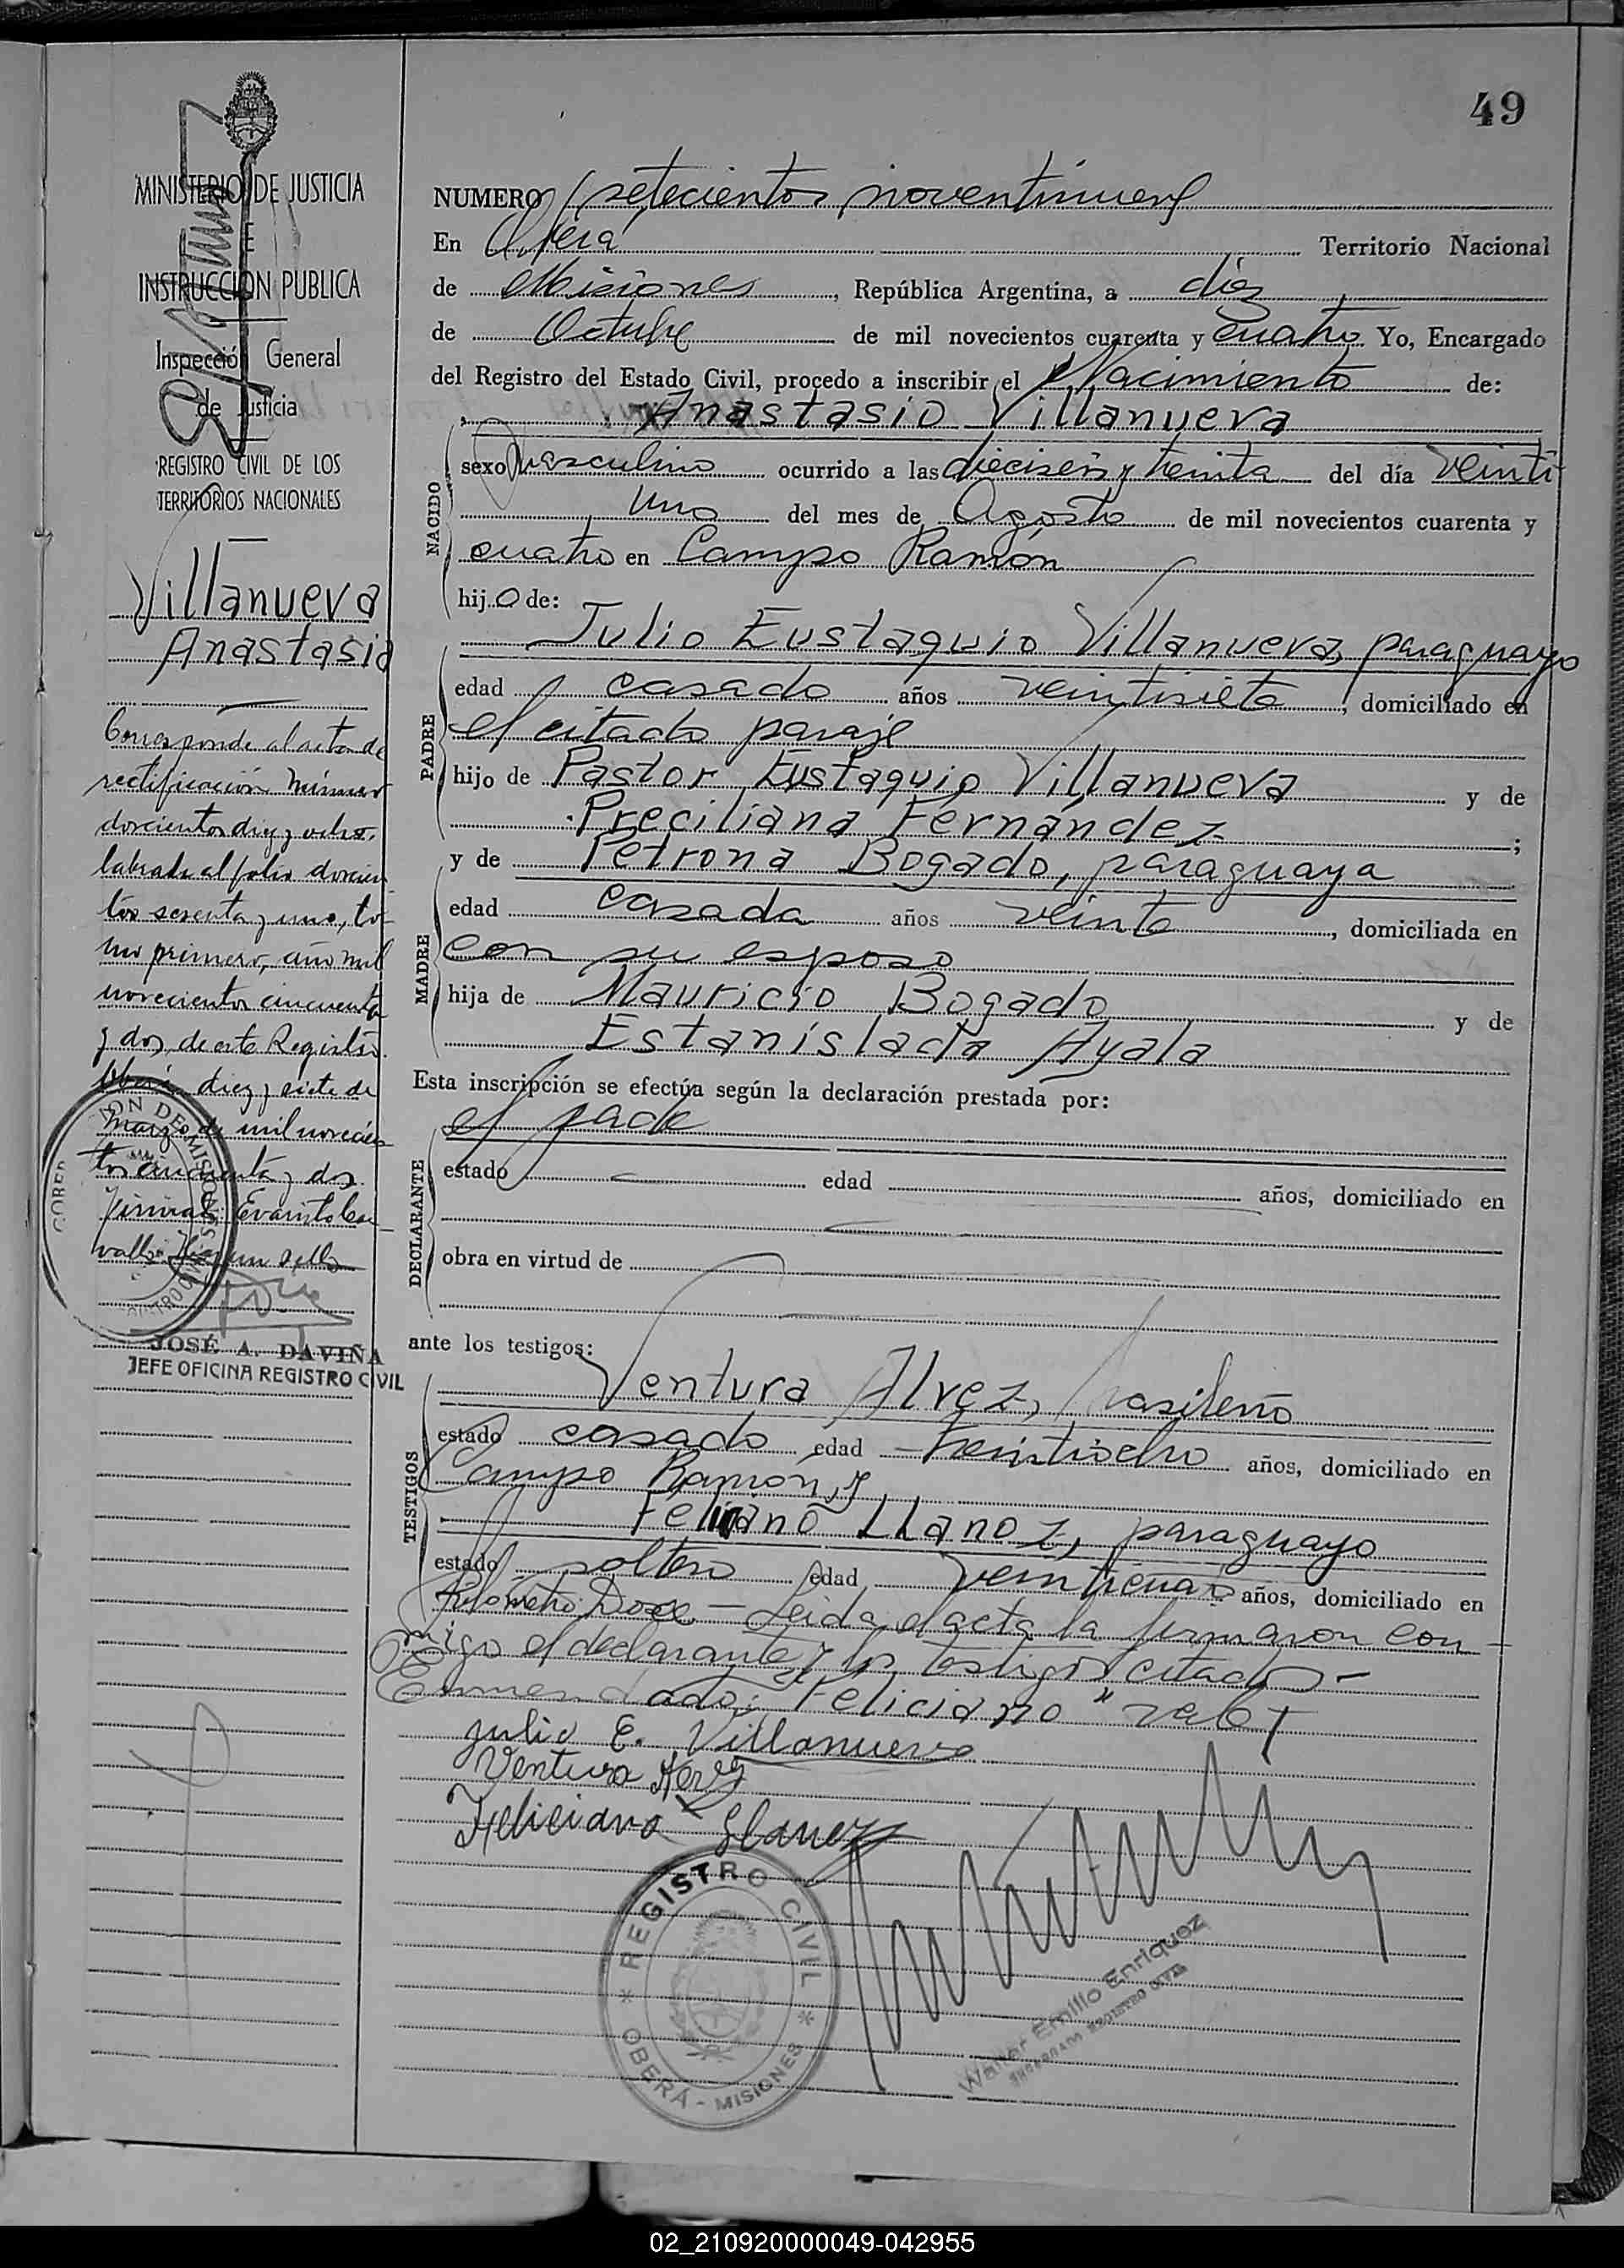 49
MINISTERIO DE JUSTICIA
E
INSTRUCCION PUBLICA
Inspección General
de Justicia
REGISTRO CIVIL DE LOS
TERRITORIOS NACIONALES
Villanueva
Anastasio
Corresponde al acta de
rectificación número
doscientos diez y ocho,
labrada al folio doscien
tos sesenta y uno, to
mo primero, año mil
novecientos cincuenta
y dos, de este Registro.
Oberá, diez y siete de
marzo de mil novecien
tos cincuenta y dos.
Firmado: Evaristo Car
vallo. Hay un sello
JOSÉ A. DAVIÑA
JEFE OFICINA REGISTRO CIVIL
NUMERO setecientos noventinueve
En Oberá Territorio Nacional
de Misiones, República Argentina, a diez
de Octubre de mil novecientos cuarenta y cuatro Yo, Encargado
del Registro del Estado Civil, procedo a inscribir el Nacimiento de:
Anastasio Villanueva
NACIDO
sexo masculino ocurrido a las dieciseis y treinta del día veinti
uno del mes de Agosto de mil novecientos cuarenta y
cuatro en Campo Ramón
hijo de:
Julio Eustaquio Villanueva, paraguayo
PADRE
edad casado años veintisiete, domiciliado en
el citado paraje
hijo de Pastor Eustaquio Villanueva y de
Preciliana Fernández;
y de Petrona Bogado, paraguaya
MADRE
edad casada años veinte, domiciliada en
con su esposo
hija de Mauricio Bogado y de
Estanislada Ayala
Esta inscripción se efectúa según la declaración prestada por:
el padre
DECLARANTE
estado edad años, domiciliado en
obra en virtud de
ante los testigos:
Ventura Alvez, brasileño
TESTIGOS
estado casado edad treintiocho años, domiciliado en
Campo Ramón, y
Feliciano Llanoz, paraguayo
estado soltero edad veinticuatro años, domiciliado en
Kilómetro Doce - Leida el acta la firmaron con-
migo el declarante y los testigos citados -
Enmendado: "Feliciano" vale
Julio E. Villanueva
Ventura Alvez
Feliciano Llanez
REGISTRO CIVIL
OBERÁ - MISIONES
Walter Emilio Enriquez
ENCARGADO REGISTRO CIVIL
02_210920000049-042955